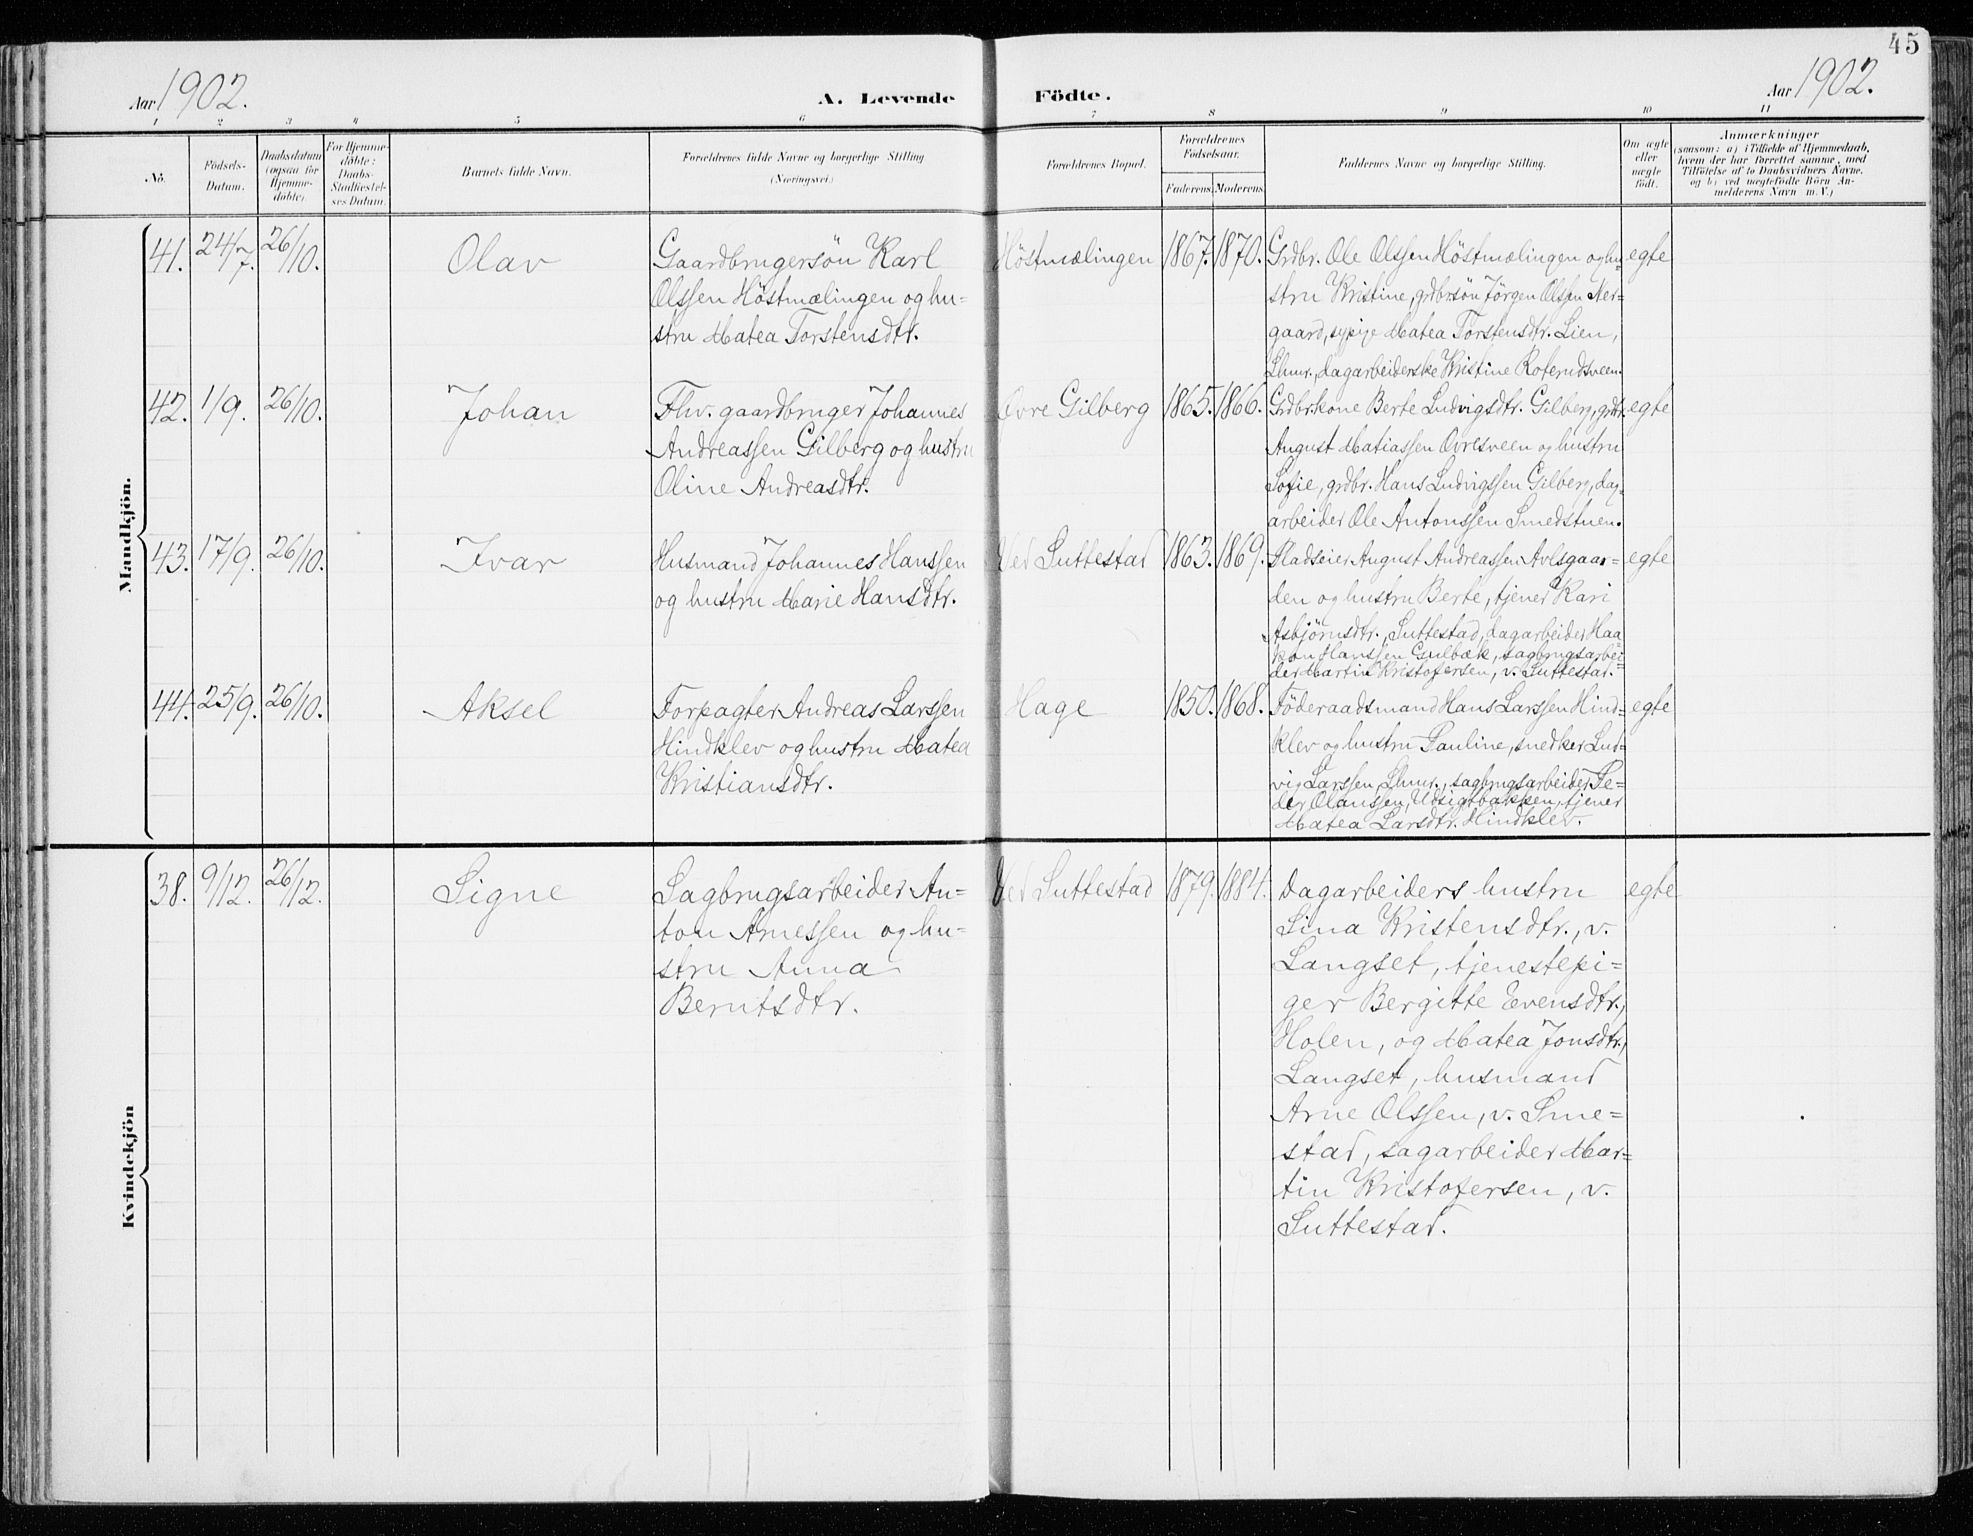 45
Aar 1902.
A. Levende Födte.
Aar 1902.
1 2 3 4 5 6 7 8 9 10 11
No.
Födsels-
Datum.
Daabsdatum
(ogsaa for
Hjemme-
döbte).
For Hjemme-
döbte:
Daabs-
Stadfæstel-
ses Datum.
Barnets fulde Navn.
Forældrenes fulde Navne og borgerlige Stilling
(Næringsvei.)
Forældrenes Bopæl.
Forældrenes
Födselsaar.
Faderens. Moderens.
Faddernes Navne og borgerlige Stilling.
Om ægte
eller
uægte
födt.
Anmærkninger
(saasom: a) i Tilfælde af Hjemmedaab,
hvem der har forrettet samme, med
Tilföielse af to Daabsvidners Navne.
og b) ved uægtefödte Börn An-
melderens Navn m. V.)
Mandkjön.
41. 24/7. 26/10. Olav
Gaardbrugersön Karl
Olssen Höstmælingen og hu-
stru Matea Torstensdtr.
Höstmælingen 1867. 1870.
Grdbr. Ole Olssen Höstmælingen og hu-
stru Kristine, grdbrsön Jörgen Olssen Ner-
gaard, sypige Matea Torstensdtr. Lien,
Lhmr., dagarbeiderske Kristine Roterudsveen.
egte
42. 1/9. 26/10. Johan
Fhv. gaardbruger Johannes
Andreassen Gilberg og hustru
Oline Andreasdtr.
Övre Gilberg 1865. 1866.
Grdbr.kone Berte Ludvigsdtr. Gilberg, grdbr.
August Matiassen Övresveen og hustru
Sofie, grdbr. Hans Ludvigssen Gilberg, dag-
arbeider Ole Antonssen Smedstuen.
egte
43. 17/9. 26/10. Ivar
Husmand Johannes Hanssen
og hustru Marie Hansdtr.
Ved Suttestad 1863. 1869.
Pladseier August Andreassen Avlsgaar-
den og hustru Berte, tjener Kari
Asbjörnsdtr., Suttestad, dagarbeider Haa-
kon Hanssen Gulbæk, sagbrugsarbei-
der Martin Kristofersen, v. Suttestad.
egte
44. 25/9. 26/10. Aksel
Forpagter Andreas Larssen
Hindklev og hustru Matea
Kristiansdtr.
Hage 1850. 1868.
Föderaadsmand Hans Larssen Hind-
klev og hustru Pauline, snedker Lud-
vig Larssen, Lhmr., sagbrugsarbeider Pe-
der Olaussen, Udsigtbakken, tjener
Matea Larsdtr. Hindklev.
egte
Kvindekjön
38. 9/12. 26/12. Signe
Sagbrugsarbeider An-
ton Arnessen og hu-
stru Anna
Berntsdtr.
Ved Suttestad 1879. 1884.
Dagarbeiders hustru
Sina Kristensdtr., v.
Langset, tjenestepi-
ger Bergitte Evensdtr.,
Holen, og Matea Jonsdtr.,
Langset, husmand
Arne Olssen, v. Sme-
stad, sagarbeider Mar-
tin Kristofersen, v.
Suttestad.
egte